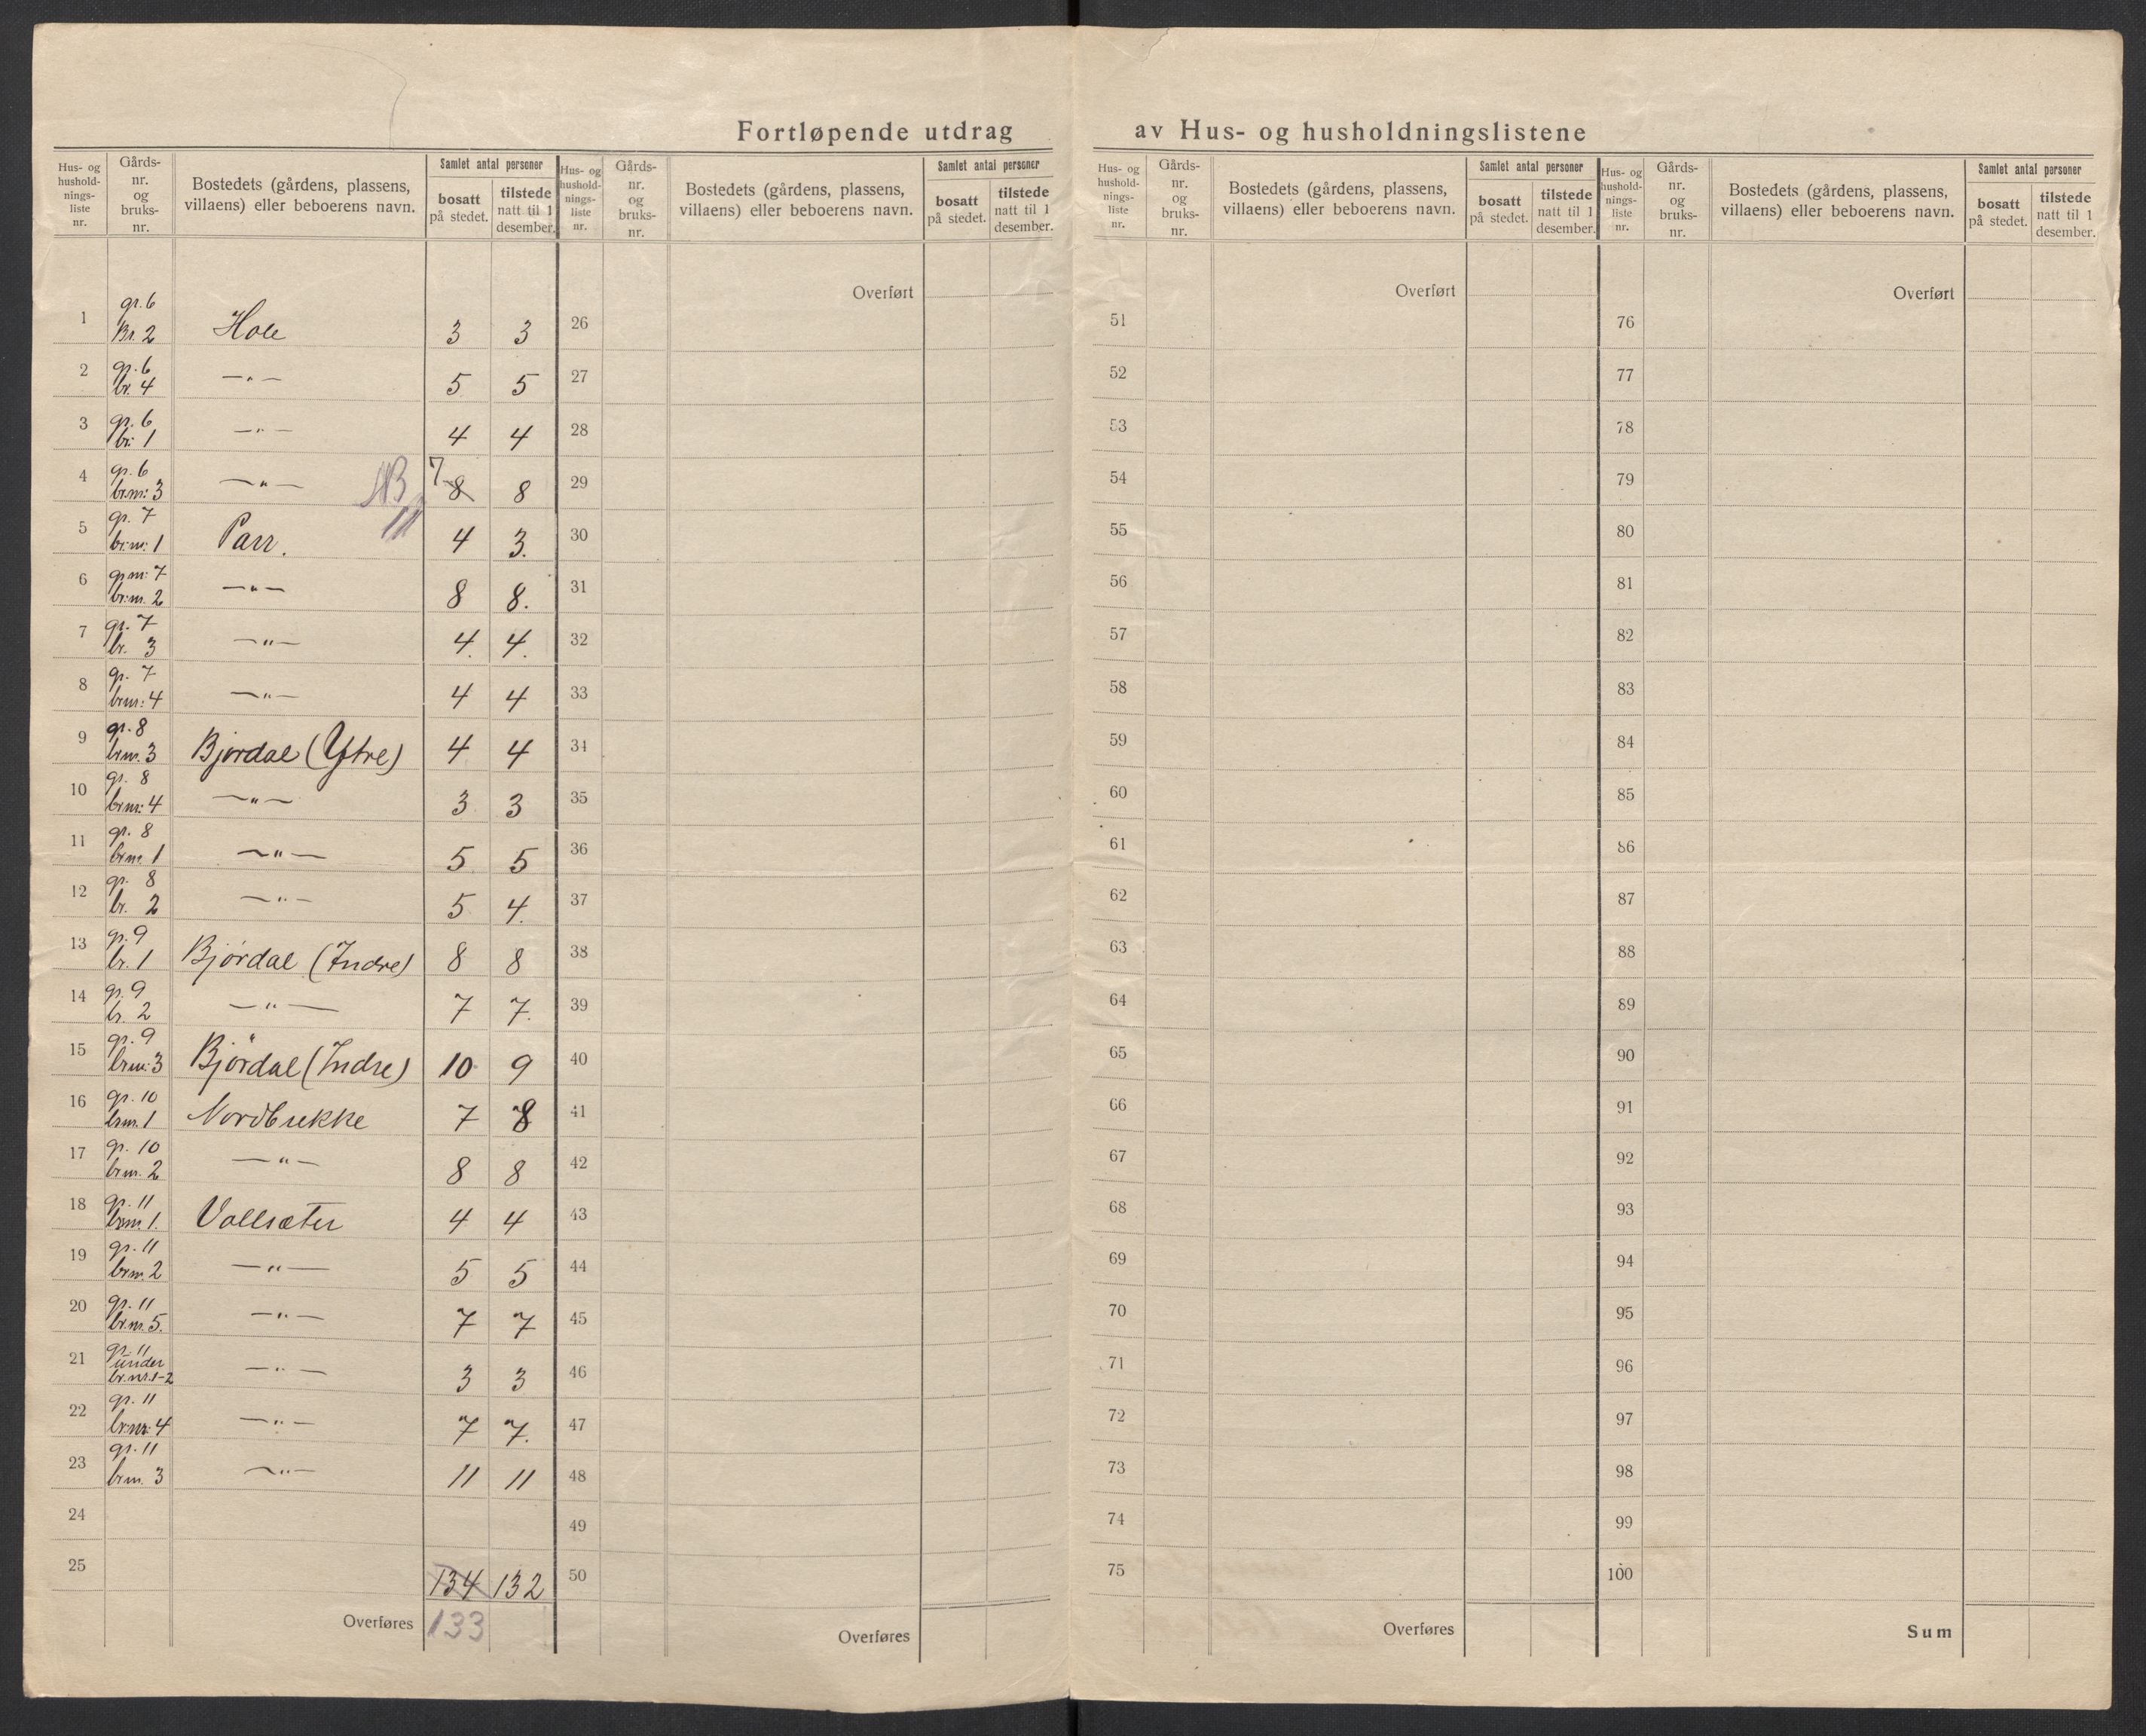 Fortløpende utdrag av Hus- og husholdningslistene
Hus- og husholdnings- liste nr.
Gårds- nr. og bruks- nr.
Bostedets (gårdens, plassens, villaens) eller beboerens navn.
Samlet antal personer
bosatt på stedet.
tilstede natt til 1 desember.
1 gr. 6 Br. 2 Hole 3 3
2 gr. 6 br. 4 —"— 5 5
3 gr. 6 br. 1 —"— 4 4
4 gr. 6 brnr. 3 —"— NB 7 8 8
5 gr. 7 brnr. 1 Parr. 4 3.
6 grnr. 7 brnr. 2 —"— 8 8.
7 gr. 7 br. 3 —"— 4. 4.
8 gr. 7 brnr. 4 —"— 4 4
9 gr. 8 brnr. 3 Bjørdal (Ytre) 4 4
10 gr. 8 brnr. 4 —"— 3 3
11 gr. 8 brnr. 1 —"— 5 5
12 gr. 8 br. 2 —"— 5 4.
13 gr. 9 br. 1 Bjørdal (Indre) 8 8
14 gr. 9 br. 2 —"— 7 7.
15 gr. 9 brnr. 3 Bjørdal (Indre) 10 9
16 gr. 10 brnr. 1 Nordbrekke 7 8
17 gr. 10 brnr. 2 —"— 8 8
18 gr. 11 brnr. 1. Vollsæter 4 4
19 gr. 11 brnr. 2 —"— 5 5
20 gr. 11 br.nr. 5. —"— 7 7
21 gr. 11 under br.nr. 1-2 —"— 3 3
22 gr. 11 brnr. 4 —"— 7 7.
23 gr. 11 brnr. 3 —"— 11 11
24
25 134 132
Overføres 133
Hus- og husholdnings- liste nr.
Gårds- nr. og bruks- nr.
Bostedets (gårdens, plassens, villaens) eller beboerens navn.
Samlet antal personer
bosatt på stedet.
tilstede natt til 1 desember.
Overført
26
27
28
29
30
31
32
33
34
35
36
37
38
39
40
41
42
43
44
45
46
47
48
49
50
Overføres
Hus- og husholdnings- liste nr.
Gårds- nr. og bruks- nr.
Bostedets (gårdens, plassens, villaens) eller beboerens navn.
Samlet antal personer
bosatt på stedet.
tilstede natt til 1 desember.
Overført
51
52
53
54
55
56
57
58
59
60
61
62
63
64
65
66
67
68
69
70
71
72
73
74
75
Overføres
Hus- og husholdnings- liste nr.
Gårds- nr. og bruks- nr.
Bostedets (gårdens, plassens, villaens) eller beboerens navn.
Samlet antal personer
bosatt på stedet.
tilstede natt til 1 desember.
Overført
76
77
78
79
80
81
82
83
84
85
86
87
88
89
90
91
92
93
94
95
96
97
98
99
100
Sum